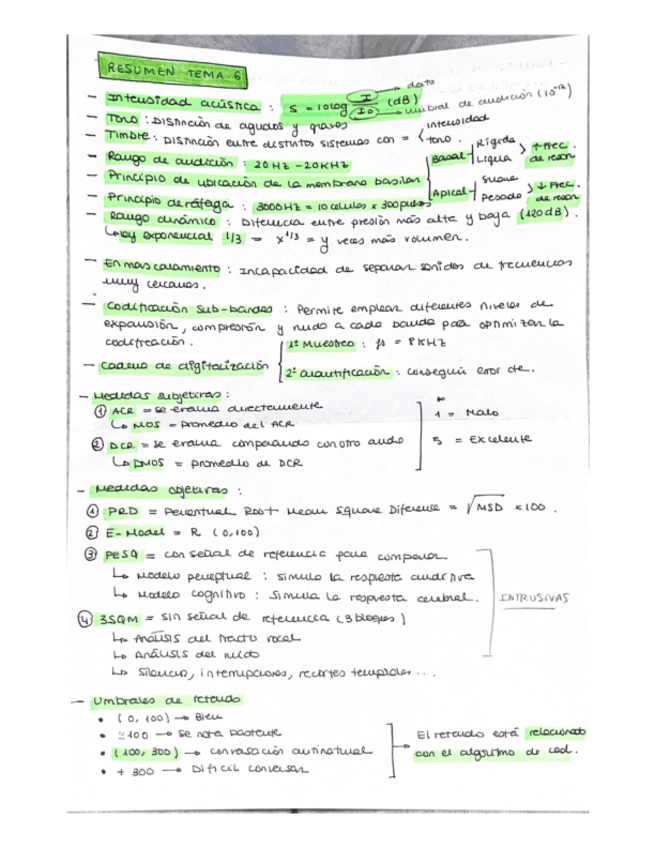 RESUMEN TEMA 6
- Intensidad acústica : S = 10 log I/I0 (dB) → dato → umbral de audición (10^-12)
- Tono : Distinción de agudos y graves
- Timbre : Distinción entre distintos sistemas con = intensidad tono.
- Rango de audición : 20 Hz - 20 KHz
- Principio de ubicación de la membrana basilar
Basal - Rígida Ligera > ↑ frec. de reson
Apical - Suave Pesado > ↓ frec. de reson
- Principio de ráfaga : 3000 Hz = 10 células x 300 pulsos
- Rango dinámico : Diferencia entre presión más alta y baja (120 dB).
↳ ley exponencial 1/3 = x^1/3 = y veces más volumen.
- Enmascaramiento : Incapacidad de separar sonidos de frecuencias
muy cercanos.
- Codificación Sub-bandas : Permite emplear diferentes niveles de
expansión, compresión y ruido a cada banda para optimizar la
codificación.
- Cadena de digitalización
1º Muestreo : fs = 8 KHz
2º cuantificación : conseguir error cte.
- Medidas subjetivas :
① ACR = se evalua directamente
↳ MOS = promedio del ACR
② DCR = se evalua comparando con otro audio
↳ DMOS = promedio de DCR
1 = Malo
5 = Excelente
- Medidas objetivas :
① PRD = Percentual Root Mean Square Diference = √MSD x 100 .
② E-Model = R (0,100)
③ PESQ = con señal de referencia para comparar.
↳ Modelo perceptual : simula la respuesta auditiva
↳ Modelo cognitivo : Simula la respuesta cerebral.
④ 3SQM = sin señal de referencia (3 bloques)
↳ Análisis del tracto vocal
↳ Análisis del ruido
↳ Silencio, interrupciones, recortes temporales ...
INTRUSIVAS
- Umbrales de retardo
• (0, 100) → Bien
• ≈100 → se nota bastante
• (100, 300) → conversación antinatural
• + 300 → Difícil conversar
El retardo está relacionado
con el algoritmo de cod.